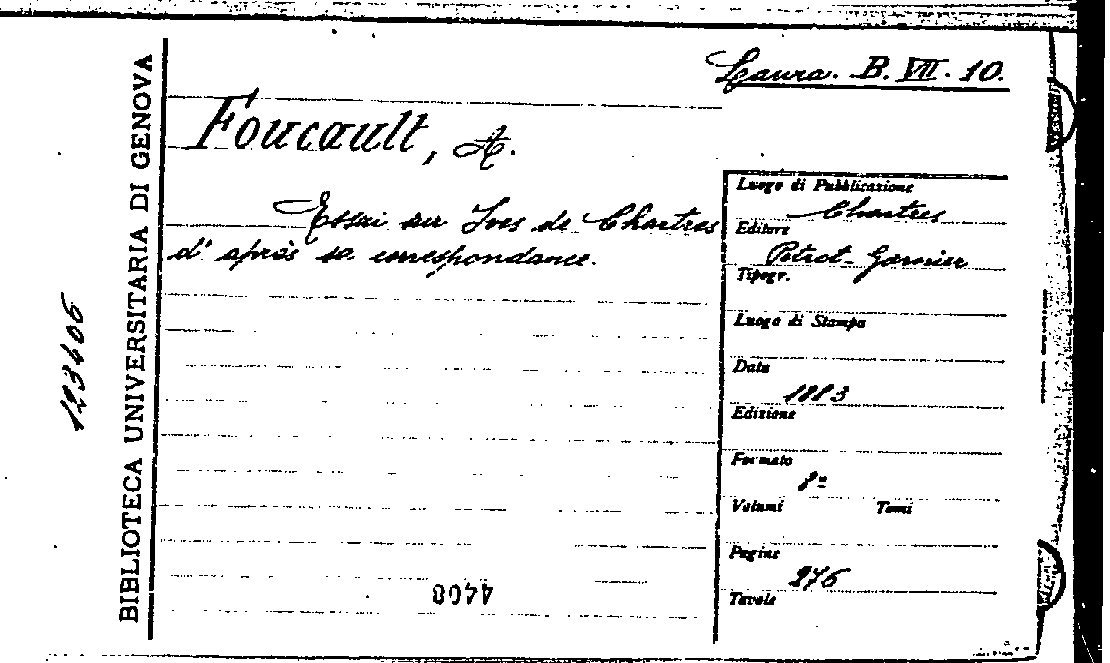 Laura. B. VII. 10.
Foucault, A.
Essai sur Ives de Chartres
d'après sa correspondance.
BIBLIOTECA UNIVERSITARIA DI GENOVA
123406
Luogo di Pubblicazione
Chartres
Editore
Petrot-Garnier
Tipogr.
Luogo di Stampa
Data
1883
Edizione
Formato
8º
Volumi Tomi
Pagine
276
Tavole
4408